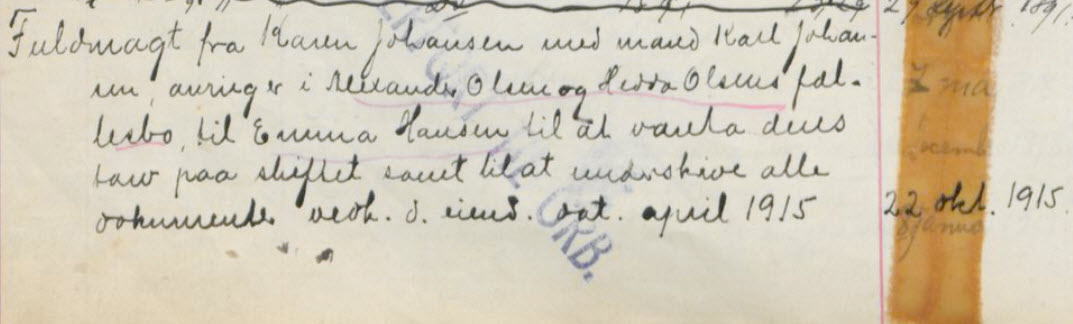 27 Septr. 1891.
Fuldmagt fra Karen Johansen med mand Karl Johan-
sen, arving er i Alexander Olsen og Hedda Olsens fæl-
lesbo, til Emma Hansen til at vareta deres
tarv paa skiftet samt til at underskrive alle
dokumenter vedk. d. eiend. dat. april 1915 22 okt. 1915.
ORB.